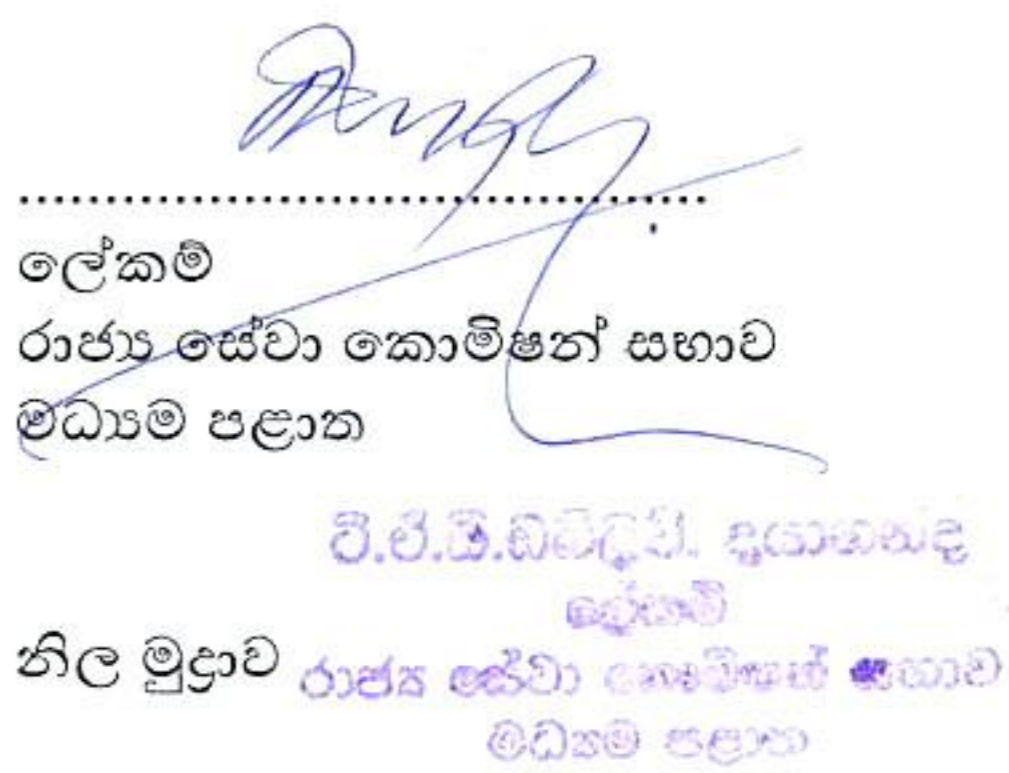 .......................................................
ලේකම්
රාජ්‍ය සේවා කොමිෂන් සභාව
මධ්‍යම පළාත
ටී.ඒ.යී.ඩබ්ලිව්. දයානන්ද
ලේකම්
නිල මුද්‍රාව රාජ්‍ය සේවා කොමිෂන් සභාව
මධ්‍යම පළාත